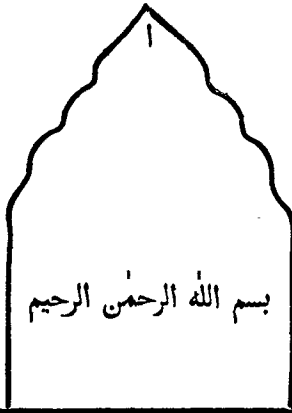 ا
بسم اللٰه الرحمٰن الرحيم